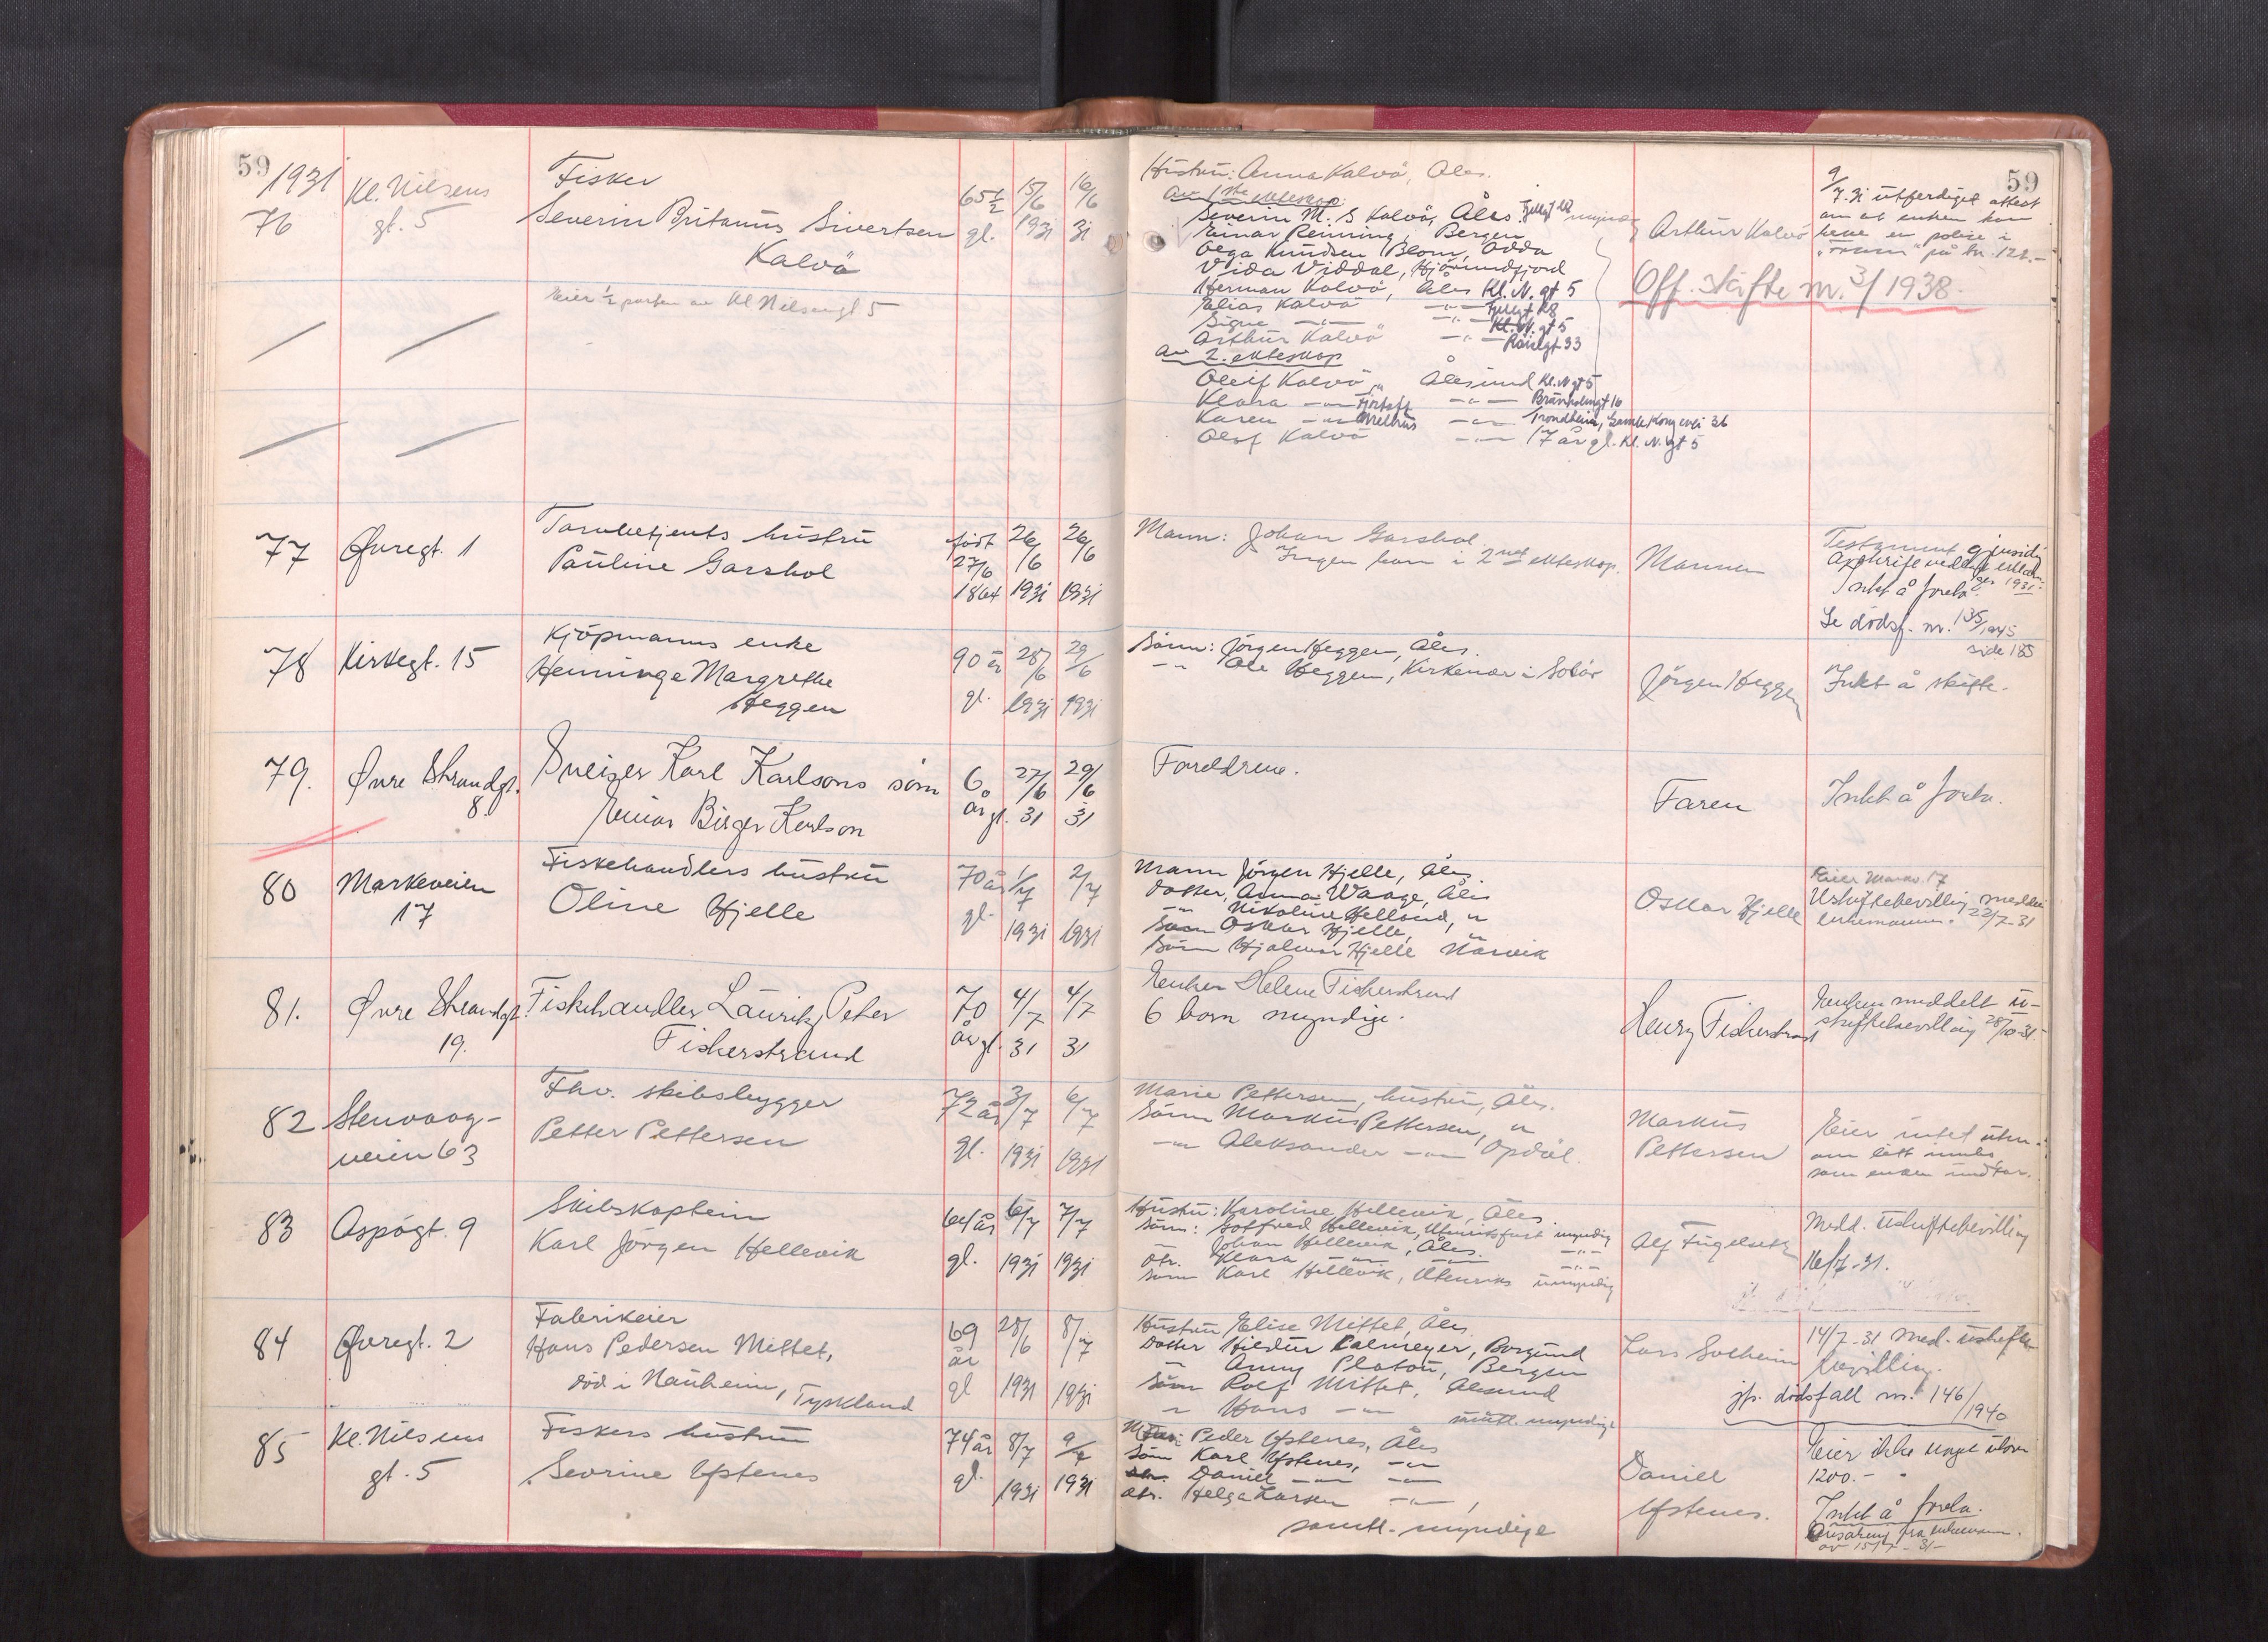 59
1931
76
Kl. Nilsens
gt. 5
Fisker
Severin Britanus Sivertsen
Kalvö
65½
gl.
15/6
1931
16/6
31
Eier ½ parten av Kl Nilsensgt 5
Hustru: Anna Kalvö, Åles.
Av 1ste ekteskap:
Severin M. S Kalvö, Åles. myndig
Einar Reinning, Bergen
Olga Knudsen Blom, Odda
Vida Viddal, Hjörundfjord
Herman Kalvö, Åles Kl. N. gt 5
Elias Kalvö -"-
Signe -"- -"- Kl. N. gt 5
Arthur Kalvö -"- Röisgt 33
Av 2. ekteskap
Oleif Kalvö, Ålesund Kl. N gt 5
Klara -"- Fjörtoft -"- 16
Karen -"- Melhus -"- Trondheim, Gamle Kongevei 36
Olaf Kalvö -"- 17 år gl. Kl. N. gt 5
Arthur Kalvö
Off. skifte nr. 3/1938.
59
9/7.31 utferdiget attest
om at enken kan
heve en polise i
"Fram" på kr. 122.-
77
Øvregt. 1
Tarnbetjents hustru
Pauline Garshol
født
27/6
1864
26/6
1931
26/6
1931
Mann: Johan Garshol
Ingen barn i 2net ekteskap.
Mannen
Testament gjensidig
Avskrift vedlagt
Intet å foreta.
1931
Se dödsf. nr. 135/1945
side 185
78
Kirkegt. 15
Kjöpmanns enke
Henninge Margrethe
Heggen
90 år
gl.
28/6
1931
29/6
1931
Sönn: Jörgen Heggen, Åles.
-"- Ole Heggen, Kirkenær i Solör
Jörgen Heggen
Intet å skifte.
79.
Øvre Strandgt.
8.
Sveiser Karl Karlsons sönn
Einar Birger Karlson
6
år gl.
27/6
31
29/6
31
Foreldrene.
Faren
Intet å foreta.
80
Markeveien
17
Fiskehandlers hustru
Oline Hjelle
70 år
gl.
1/7
1931
2/7
1931
Mann Jörgen Hjelle, Åles
Datter, Anna Waage, Åles
-"- Nikoline Helland, "
Sönn Oskar Hjelle, "
Sönn Hjalmar Hjelle Narvik
Oskar Hjelle
Eier Markv. 17
Uskiftebevilling meddelt
enkemannen. 22/7-31
81.
Øvre Strandgt.
19.
Fiskehandler Laurits Peter
Fiskerstrand
70
år gl.
4/7
31
4/7
31
Enken Helene Fiskerstrand
6 barn myndige.
Henry Fiskerstrand
Enken meddelt u-
skiftebevilling 28/10-31.
82
Stenvaag-
veien 63
Fhv. skibsbygger
Petter Pettersen
72 år
gl.
3/7
1931
6/7
1931
Marie Pettersen, hustru, Åles.
Sönn Markus Pettersen, "
-"- Aleksander -"- Opdal.
Markus
Pettersen
Eier intet uten-
om litt innbo
som enken
83
Aspögt. 9
Skibskaptein
Karl Jörgen Hellevik
64 år
gl.
6/7
1931
7/7
1931
Hustru: Karoline Hellevik, Åles
Sönn: Gotfred Hellevik, Utenriksfart myndig
Johan Hellevik, Åles. -"-
Dtr. Klara -"- -"- -"-
Sönn Karl Hellevik, Utenriks umyndig
Alf Fugelseth
Medd. uskiftebevilling
16/7-31.
84
Øvregt. 2
Fabrikeier
Hans Pedersen Mittet,
död i Nauheim, Tyskland
69
år
gl
28/6
1931
8/7
1931
Hustru Elise Mittet, Åles.
Datter Hjedur Calmeyer, Borgund
-"- Anny Platou, Bergen
Sönn Rolf Mittet, Ålesund
-"- Hans -"-
samtl. myndige
Lars Solheim
14/7-31 med. uskifte-
bevilling.
jfr. dödsfall nr. 146/1940
85
Kl. Nilsens
gt. 5
Fiskers hustru
Sevrine Ystenes
74 år
gl.
8/7
1931
9/7
1931
Peder Ystenes, Åles
Sönn Karl Ystenes, -"-
Daniel -"- -"-
dtr. Helga Larsen -"-,
samtl. myndige
Daniel
Ystenes.
Eier ikke noget utover
1200.-
Intet å foreta.
fra enkemann.
av 15/7-31-